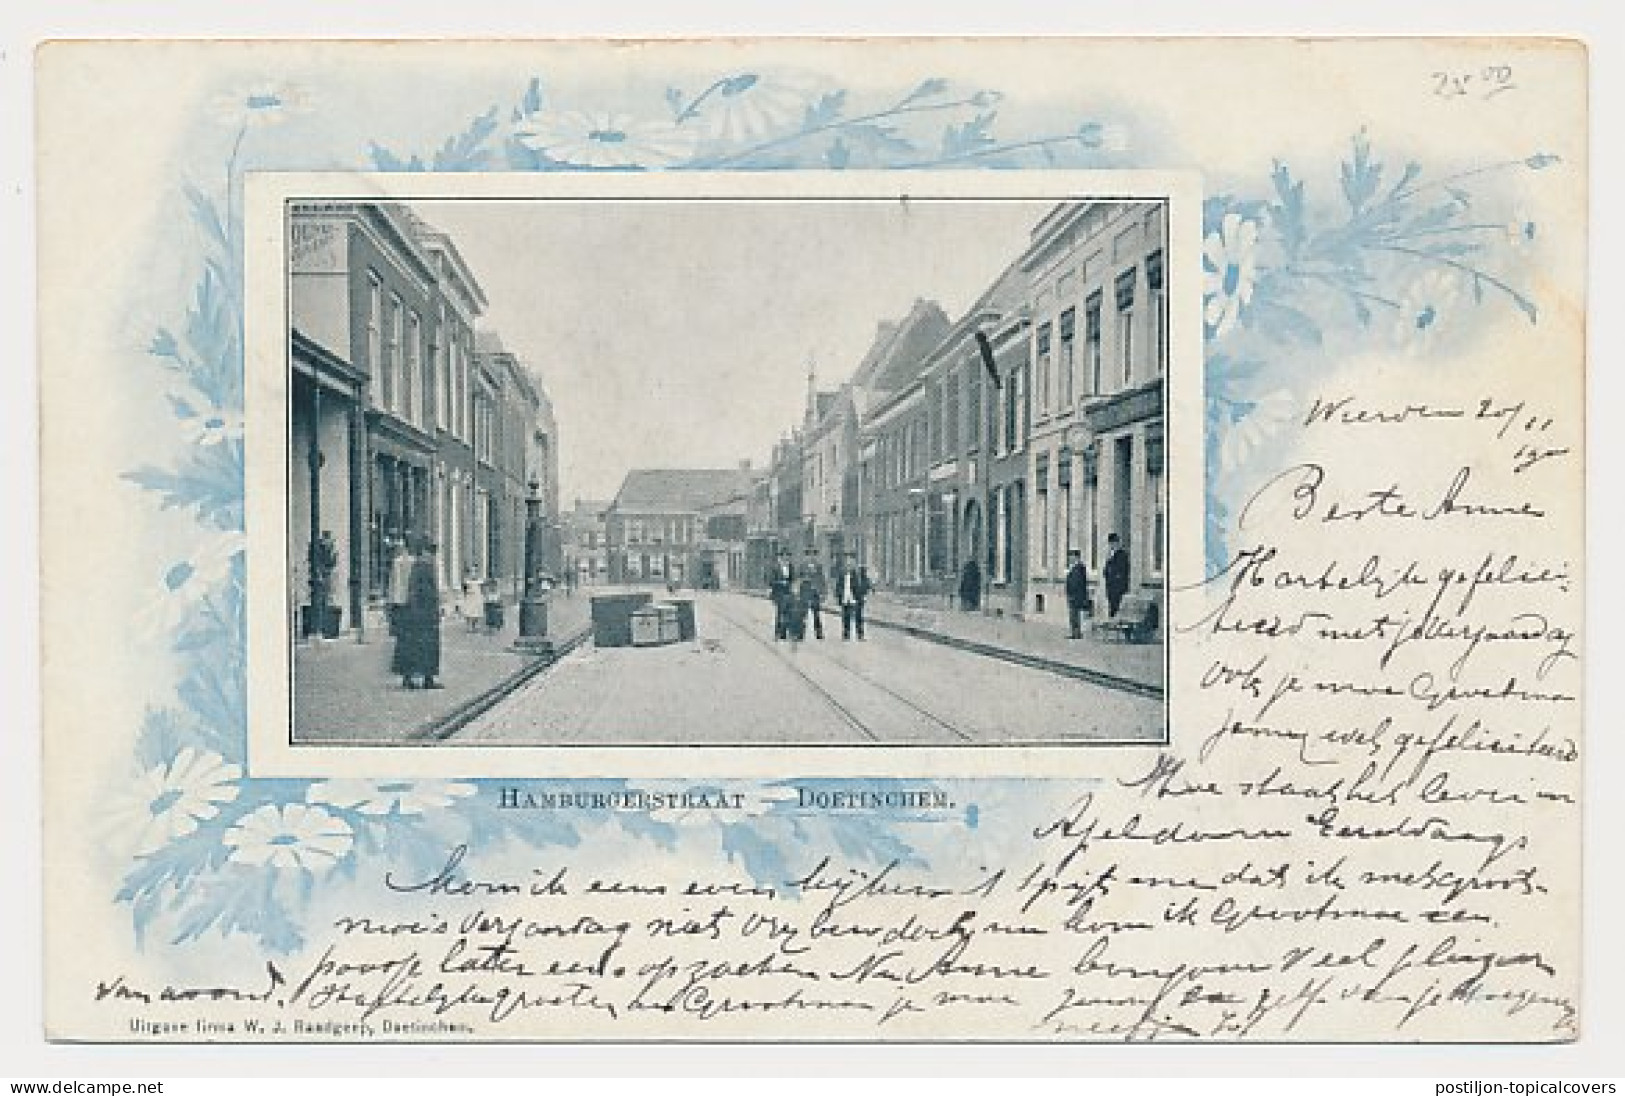 25 00
Wierden 20/11
1900
Beste Anne
Hartelijk gefelici-
teerd met je verjaardag
Ook je moe Grootmoe
wel gefeliciteerd
Hoe staat het leven in
Apeldoorn
Kom ik eens even kijken 't spijt me dat ik met groot-
moe's verjaardag niet doch nu kom ik Grootmoe een
later eens opzoeken Nu Anne bonjour Veel plezier
van avond. Hartelijke groeten aan Grootmoe je moe en zelf van je
neefje
HAMBURGERSTRAAT — DOETINCHEM.
Uitgave firma W. J. Raadgeep, Doetinchem.
delcampe.net
postiljon-topicalcovers